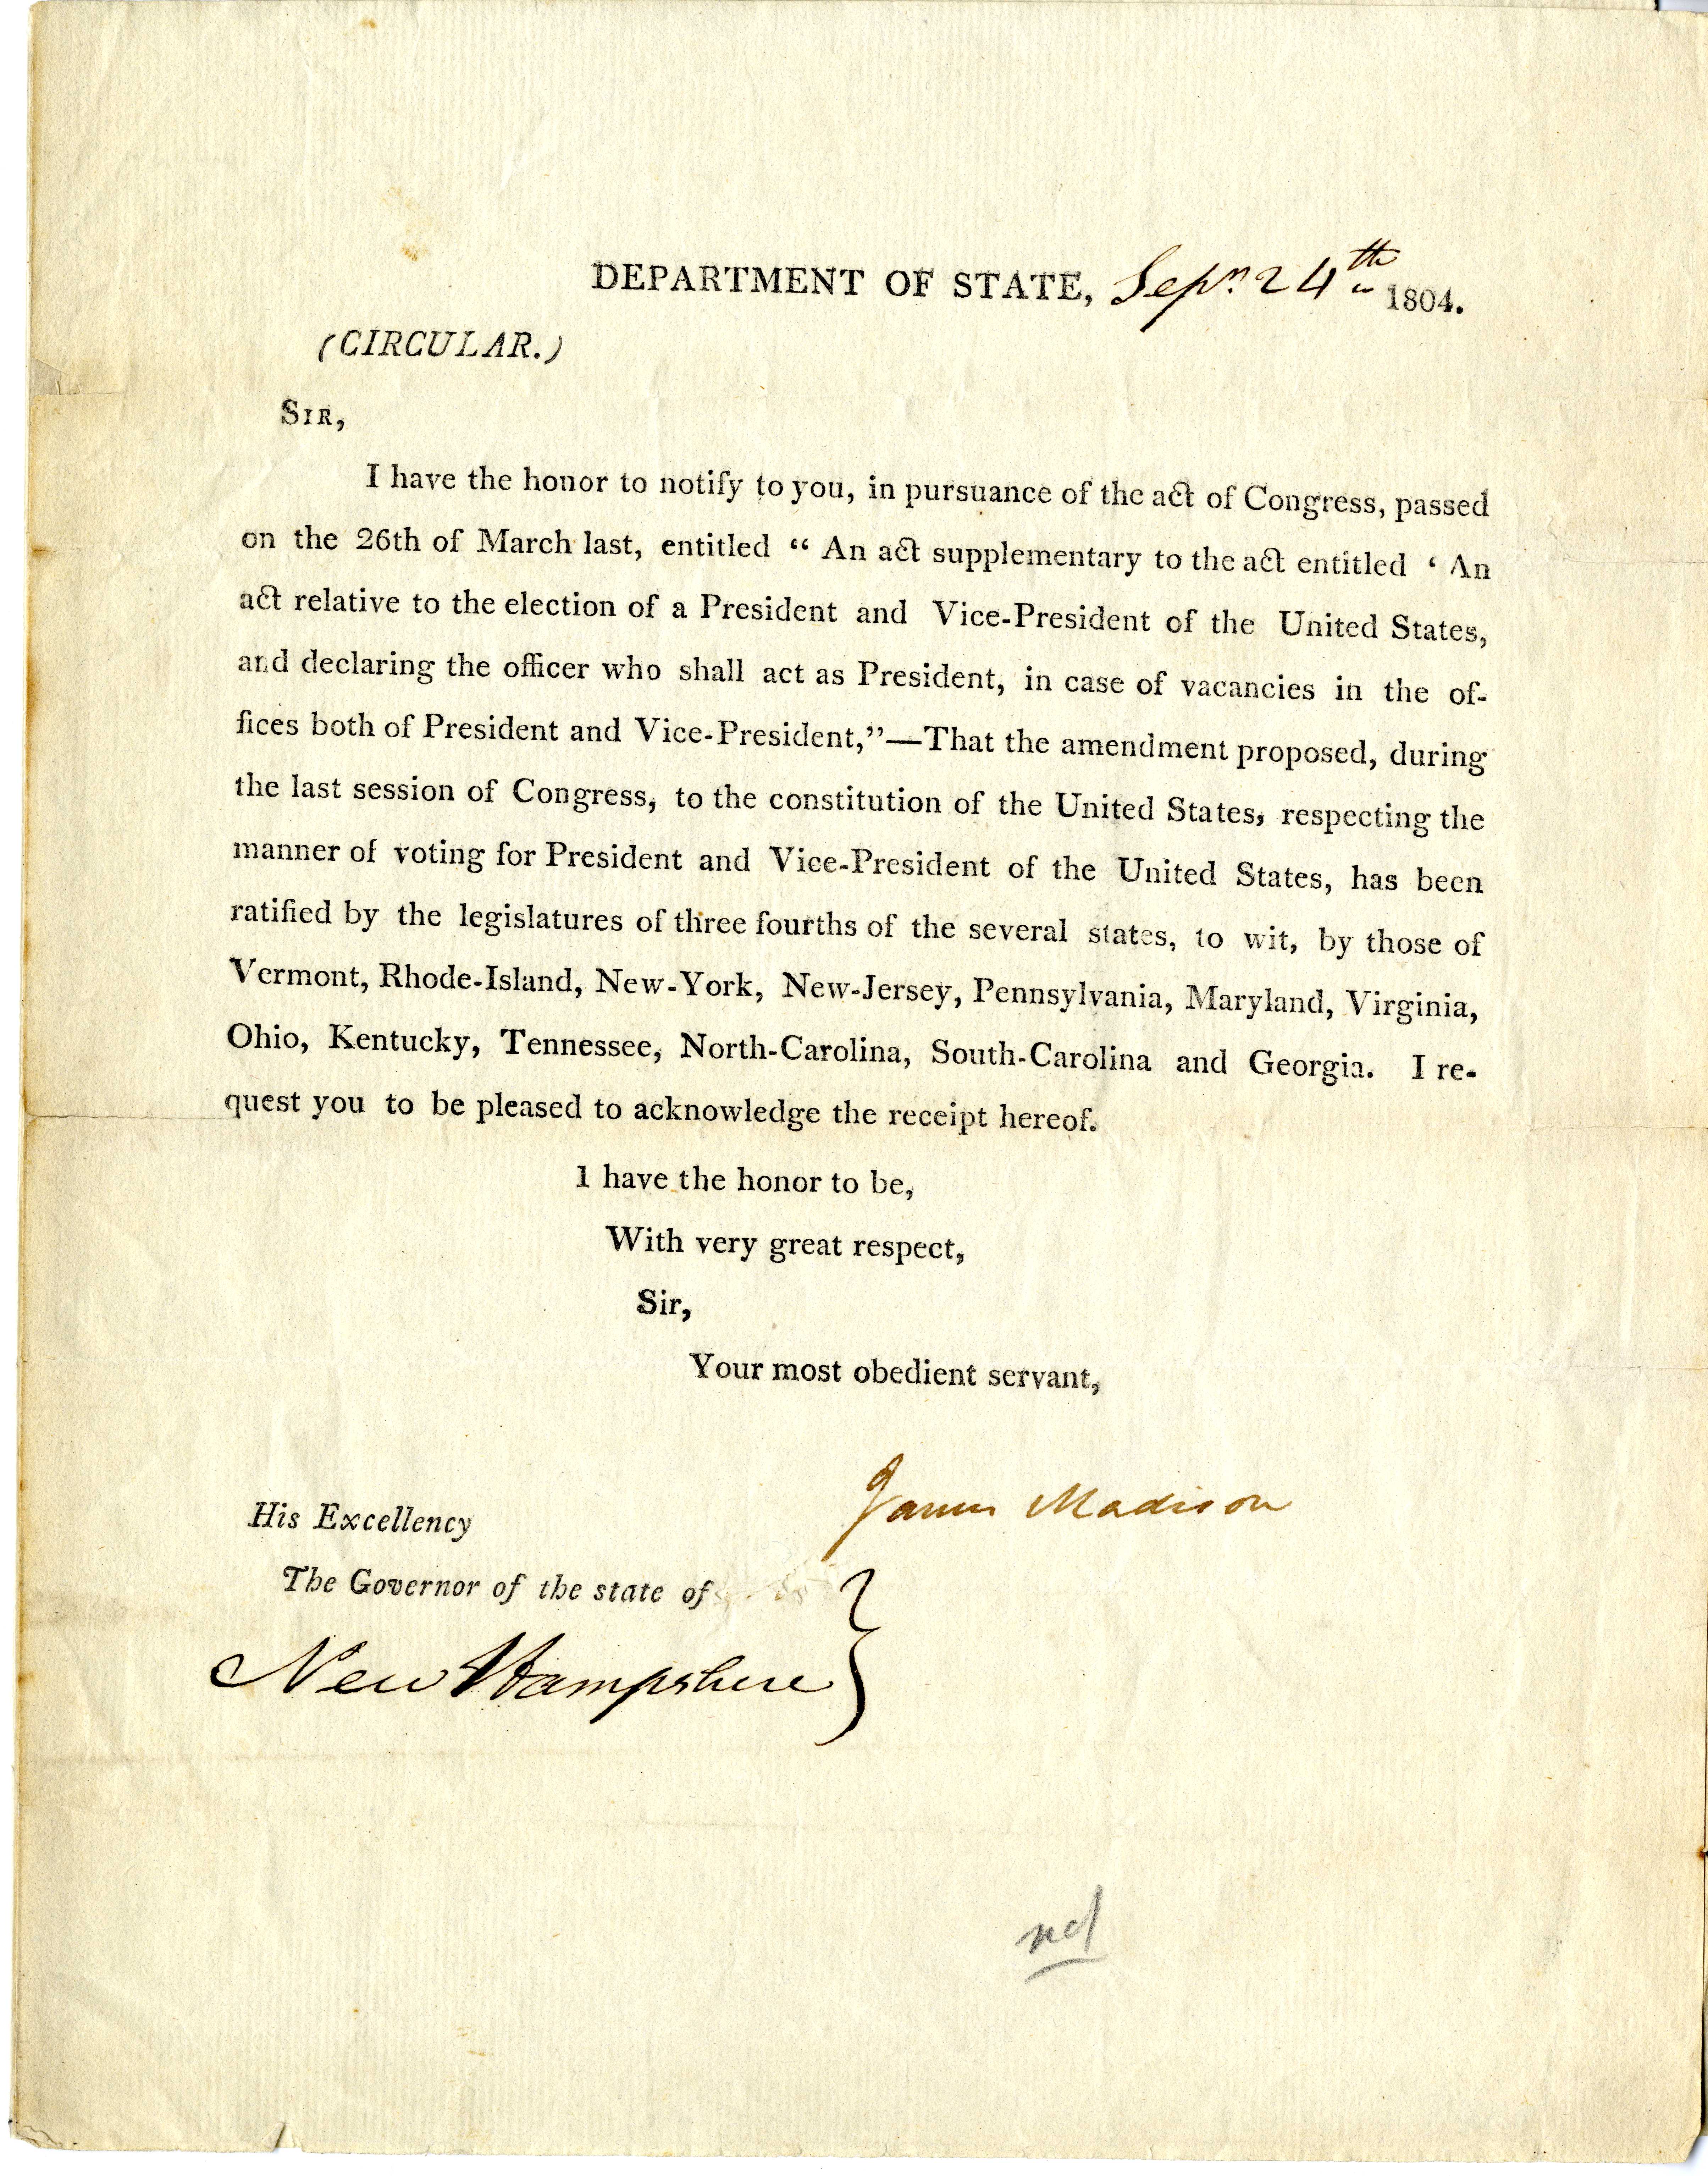 DEPARTMENT OF STATE, Sepr. 24th 1804.
(CIRCULAR.)
SIR,
I have the honor to notify to you, in pursuance of the act of Congress, passed
on the 26th of March last, entitled “ An act supplementary to the act entitled ‘ An
act relative to the election of a President and Vice-President of the United States,
and declaring the officer who shall act as President, in case of vacancies in the of-
fices both of President and Vice-President,”—That the amendment proposed, during
the last session of Congress, to the constitution of the United States, respecting the
manner of voting for President and Vice-President of the United States, has been
ratified by the legislatures of three fourths of the several states, to wit, by those of
Vermont, Rhode-Island, New-York, New-Jersey, Pennsylvania, Maryland, Virginia,
Ohio, Kentucky, Tennessee, North-Carolina, South-Carolina and Georgia. I re-
quest you to be pleased to acknowledge the receipt hereof.
I have the honor to be,
With very great respect,
Sir,
Your most obedient servant,
James Madison
His Excellency
The Governor of the state of
New Hampshire